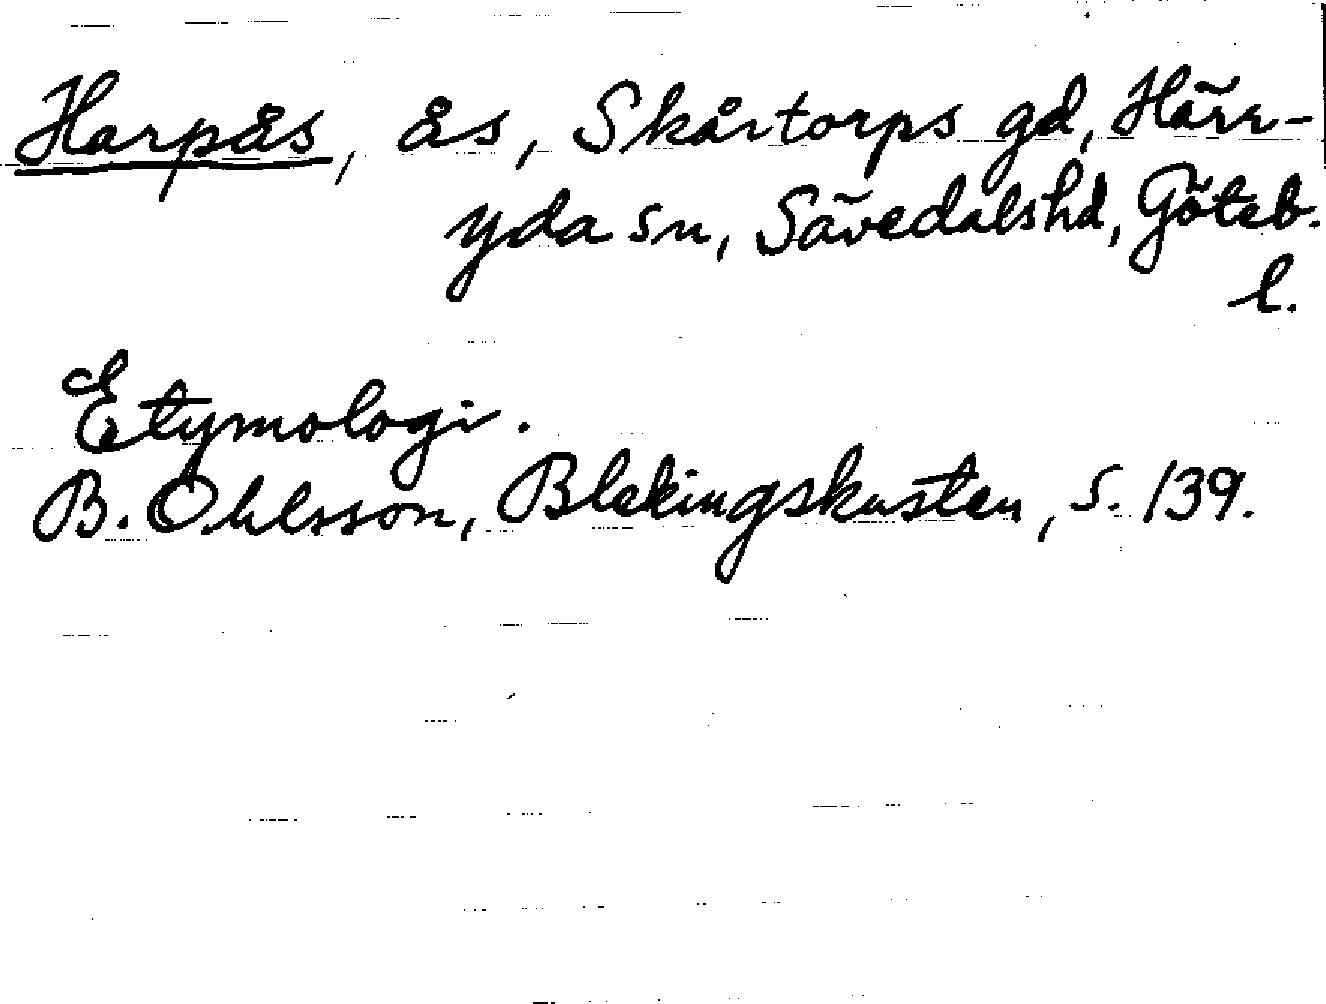 Harpås, ås, Skårtorps gd, Härr-
yda sn, Sävedalshd, Göteb.
l.
Etymologi.
B. Ohlsson, Blekingskusten, s. 139.